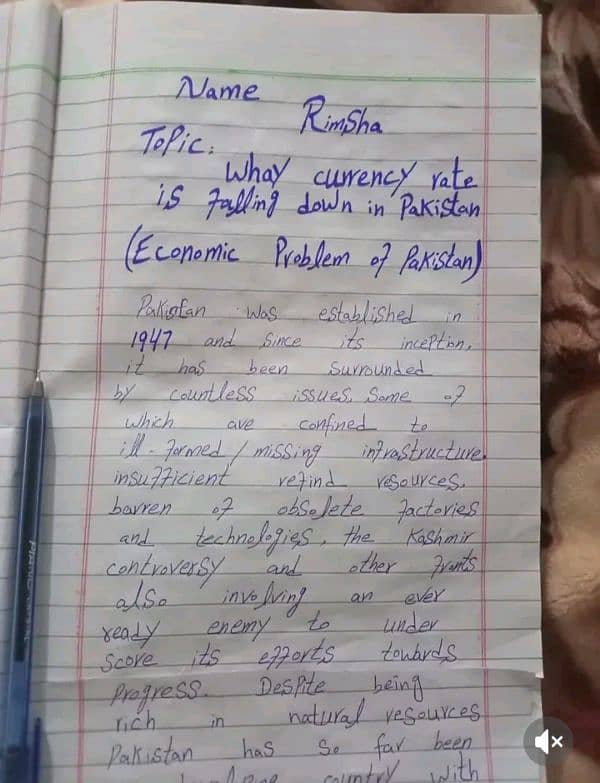 Name
Rimsha
Topic:
Whay currency rate
is falling down in Pakistan
(Economic Problem of Pakistan)
Pakistan was established in
1947 and since its inception,
it has been surrounded
by countless issues, Some of
which are confined to
ill-formed / missing infrastructure.
insufficient refind resources.
barren of obsolete factories
and technologies, the Kashmir
controversy and other fronts
also involving an ever
ready enemy to under
score its efforts towards
Progress. Despite being
rich in natural resources
Pakistan has so far been
country with